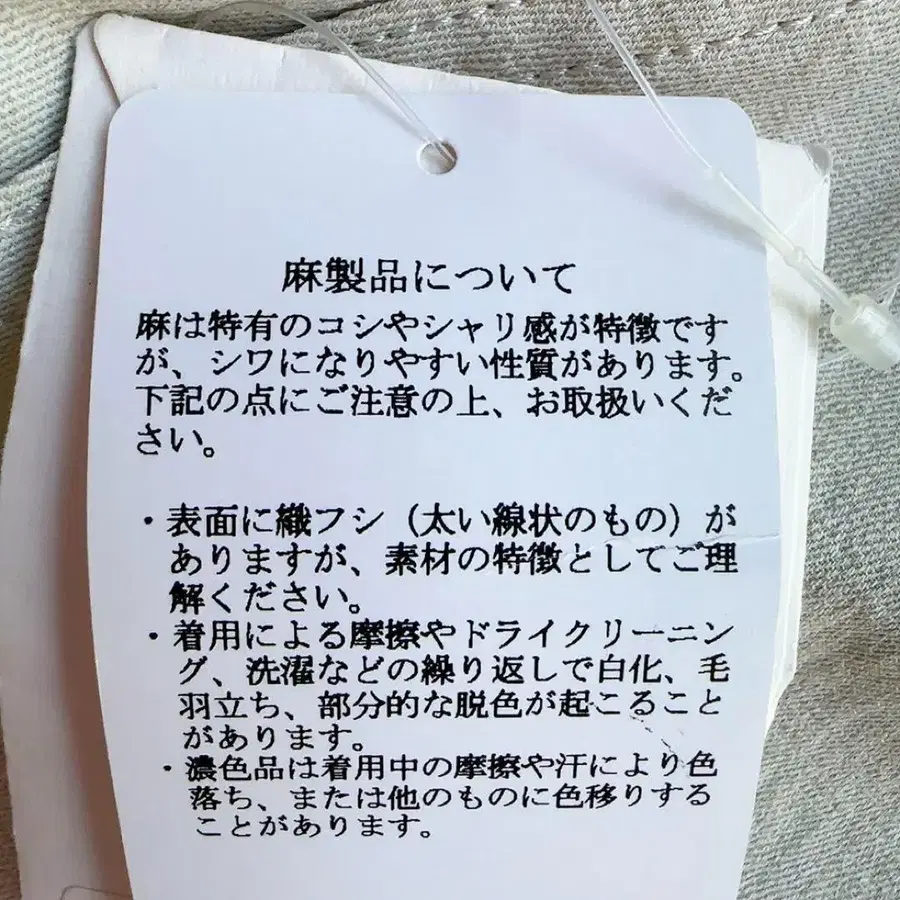 麻製品について
麻は特有のコシやシャリ感が特徴です
が、シワになりやすい性質があります。
下記の点にご注意の上、お取扱いくだ
さい。
・表面に織フシ（太い線状のもの）が
ありますが、素材の特徴としてご理
解ください。
・着用による摩擦やドライクリーニン
グ、洗濯などの繰り返しで白化、毛
羽立ち、部分的な脱色が起こること
があります。
・濃色品は着用中の摩擦や汗により色
落ち、または他のものに色移りする
ことがあります。